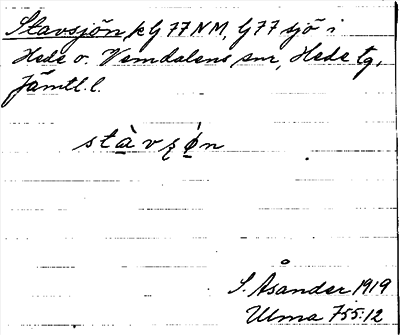 Stavsjön, kG77NM, G77 sjö i
Hede o. Vemdalens snr, Hede tg,
Jämtl. l.
stàvʂǿn
S. Åsander 1919
Ulma 755:12